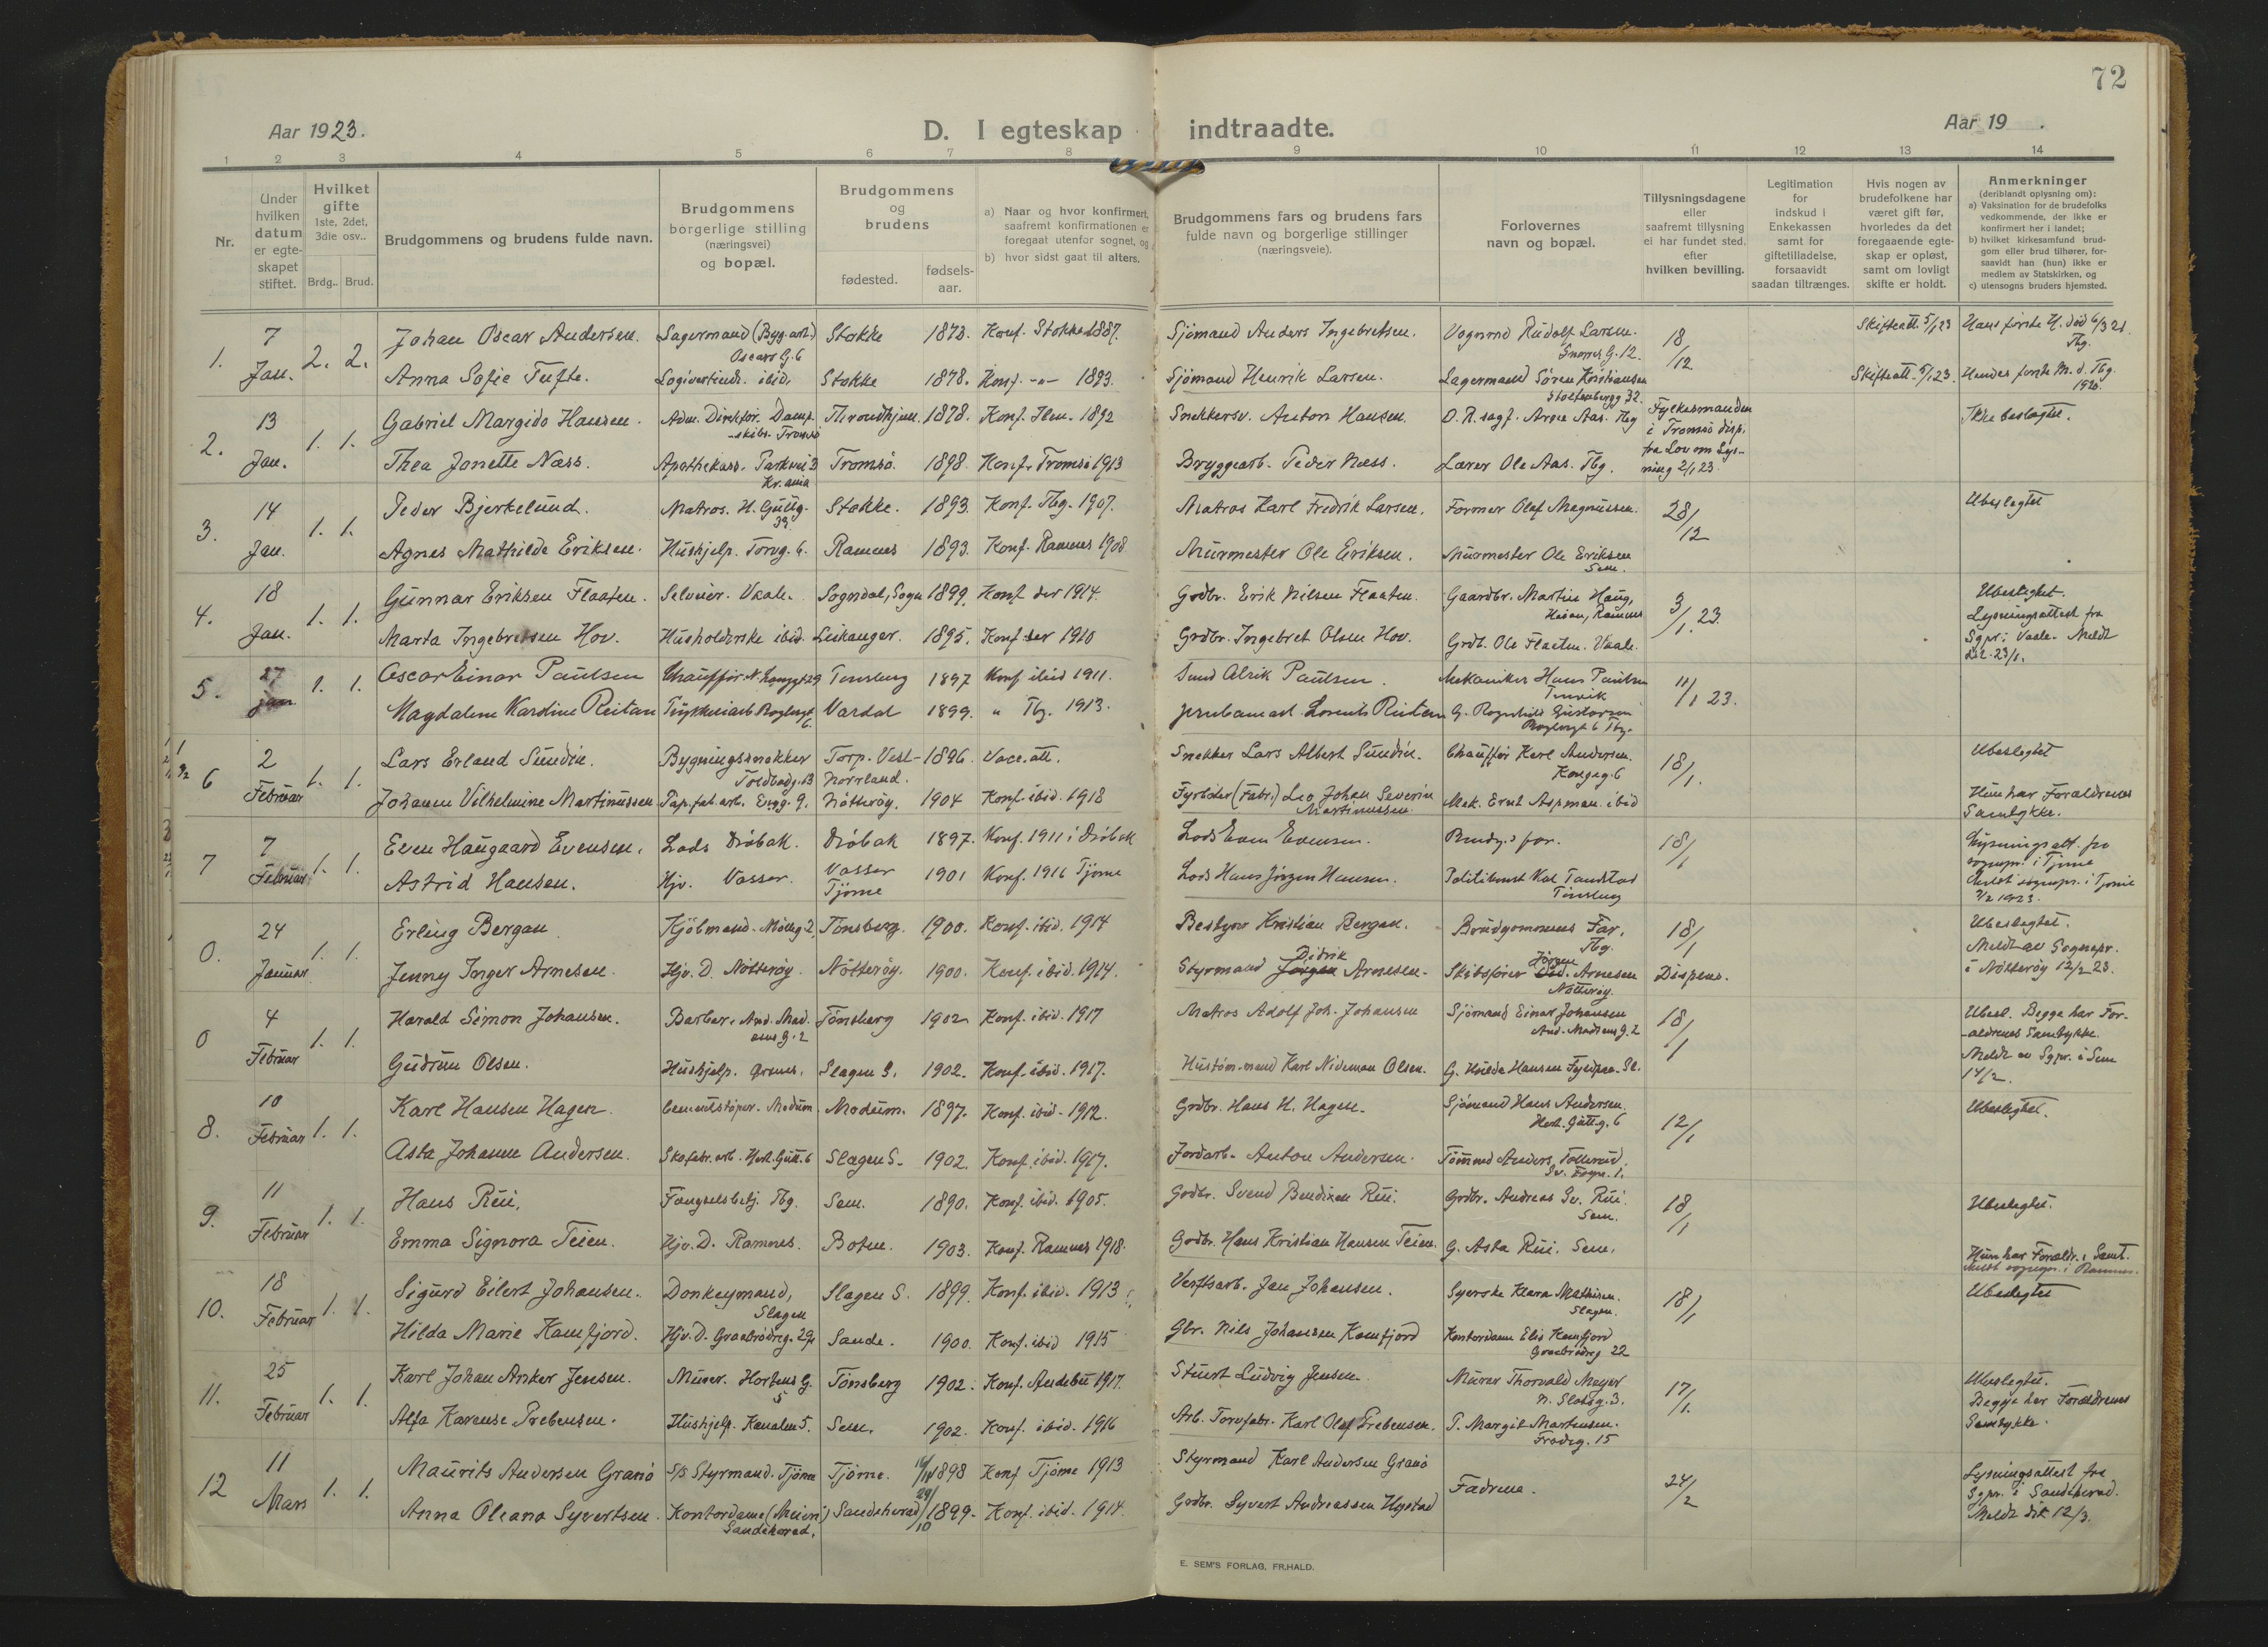 72
Aar 1923.
D. I egteskap indtraadte.
Aar 19 .
1 2 3 4 5 6 7 8 9 10 11 12 13 14
Nr.
Under hvilken datum er egte-skapet stiftet.
Hvilket gifte
1ste, 2det, 3die osv..
Brdg.. Brud.
Brudgommens og brudens fulde navn.
Brudgommens borgerlige stilling (næringsvei) og bopæl.
Brudgommens og brudens
fødested.
fødsels-aar.
a) Naar og hvor konfirmert, saafremt konfirmationen er foregaat utenfor sognet, og
b) hvor sidst gaat til alters.
Brudgommens fars og brudens fars fulde navn og borgerlige stillinger (næringsveie).
Forlovernes navn og bopæl.
Tillysningsdagene eller saafremt tillysning ei har fundet sted, efter hvilken bevilling.
Legitimation for indskud i Enkekassen samt for giftetilladelse, forsaavidt saadan tiltrænges.
Hvis nogen av brudefolkene har været gift før, hvorledes da det foregaaende egte-skap er opløst, samt om lovligt skifte er holdt.
Anmerkninger
(deriblandt oplysning om):
a) Vaksination for de brudefolks vedkommende, der ikke er konfirmert her i landet;
b) hvilket kirkesamfund brud-gom eller brud tilhører, for-saavidt han (hun) ikke er medlem av Statskirken, og
c) utensogns bruders hjemsted.
1. 7 Jan. 2. 2.
Johan Oscar Andersen. Lagermand (Byg. arb.) Oscars G. 6 Stokke 1873. Konf. Stokke 1887. Sjömand Anders Ingebretsen. Vognmd Rudolf Larsen. Snorres G. 12. 18/12 Skifteatt. 5/1 23 Hans första H. död 6/3 21. Tbg.
Anna Sofie Tufte. Logivertinde. ibid. Stokke 1878. Konf. -"- 1893. Sjömand Henrik Larsen. Lagermand Sören Kristiansen Stoltenbergg 32. Skifteatt. 5/1 23. Hendes förste M. d. Tbg. 1920.
2. 13 Jan. 1. 1.
Gabriel Margido Hansen. Adm. Direktör. Damp-skibs. Tromsö Throndhjem. 1878. Konf. Ilen. 1892 Snekkersv. Anton Hansen. O. R. sagf. Arne Aas. Tbg Fylkesmanden i Tromsö disp. fra Lov om Lys-ning 2/1 23. Ikke beslegtet.
Thea Jonette Næss. Apothekass. Parkvei 3 Kr.ania Tromsö. 1898. Konf. Tromsö 1913 Bryggearb. Peder Næss. Lærer Ole Aas. Tbg.
3. 14 Jan. 1. 1.
Peder Bjerkelund. Matros. H. Guttg. 39 Stokke. 1893. Konf. Tbg. 1907. Matros Karl Fredrik Larsen. Former Olaf Magnussen. 28/12 Ubeslegtet
Agnes Mathilde Eriksen. Hushjelp. Torvg. 6. Ramnes 1893. Konf. Ramnes 1908 Murmester Ole Eriksen. Murmester Ole Eriksen Sem.
4. 18 Jan. 1. 1.
Gunnar Eriksen Flaaten. Selveier. Vaale. Sogndal, Sogn 1899. Konf. der 1914. Grdbr. Erik Nilsen Flaaten. Gaardbr. Martin Haug, Ramnes 3/1. 23. Ubeslegtet. Lysningsattest fra Sgpr. i Vaale. Meldt dit 23/1.
Marta Ingebretsen Hov. Husholderske ibid. Leikanger. 1895. Konf. der 1910 Grdbr. Ingebret Olsen Hov. Grdb. Ole Flaaten. Vaale.
5. 27 jan 1. 1.
Oscar Einar Paulsen Chaufför. 29 Tönsberg 1897 Konf ibid 1911. Alrik Paulsen. Mekaniker Hans Paulsen 11/1 23.
Magdalene Karoline Reitan 6. Vardal 1899. " Tbg. 1913. Lorents Reitan 6 Tbg.
6 2 Februar 1. 1.
Lars Erland Sundin. Bygningssnekker Toldbodg. 13 Torp. Vest-Norrland. 1896. Vacc. att. Snekker Lars Albert Sundin. Chaufför Karl Andersen. Kongeg. 6 18/1. Ubeslegtet
Johanne Vilhelmine Martinussen Pap. fab. arb. Engg. 9. Nötteröy. 1904 Konf. ibid. 1918 Fyrböter (Fabr.) Leo Johan Severin Martinussen Mek. Ernst Aspman. ibid Hun har Forældrenes Samtykke.
7 7 Februar 1. 1.
Even Haugaard Evensen. Lods Dröbak. Dröbak 1897. Konf. 1911 i Dröbak Lods Even Evensen. Brudg.s far. 18/1 Lysningsatt. fra sognepr. i Tjöme
Astrid Hansen. Hjv. Vasser. Vasser Tjöme 1901 Konf. 1916 Tjöme Lods Hans Jörgen Hansen. Politikonst Tönsberg Meldt sognepr. i Tjöme 7/2 1923.
0. 24 Januar 1. 1.
Erling Bergan Kjölmand. Mölleg 2, Tönsberg. 1900. Konf. ibid. 1914 Bestyrer Kristian Bergan. Brudgommens Far, Tbg. 18/1 Dispens. Ubeslegtet. Meldt av Sognepr. i Nötteröy 12/2 23.
Jenny Inger Arnesen. Hjv. D. Nötteröy. Nötteröy. 1900. Konf. ibid. 1914. Styrmand Didrik Arnesen. Skibsförer Jörgen Arnesen Nötteröy.
0 4 Februar 1. 1.
Harald Simon Johansen. Barber. And. Mad. sens G. 2 Tönsberg 1902 Konf. ibid. 1917 Matros Adolf Joh. Johansen Sjömand Einar Johansen And. Madsens g. 2 18/1 Ubesl. Begge har For-ældrenes Samtykke. Meldt av Sgpr. i Sem 14/2.
Gudrun Olsen. Hushjelp. Slagen S. 1902. Konf. ibid. 1917. Hustöm.mand Karl Nideman Olsen. G. Hulda Hansen Sl.
8. 10 Februar 1. 1.
Karl Hansen Hagen. Cementstöper. Modum. Modum. 1897. Konf. ibid. 1912. Grdbr. Hans H. Hagen. Sjömand Hans Andersen. Hert. Gutt. g. 6 12/1 Ubeslegtet.
Asta Johanne Andersen. Skofabr. arb. Hert. Gutt. 6 Slagen S. 1902. Konf. ibid. 1917. Jordarb. Anton Andersen. Tömmd Anders Tollerud. Sv. 1.
9. 11 Februar 1. 1.
Hans Rui. Fængselsbetj. Tbg. Sem. 1890. Konf. ibid. 1905. Grdbr. Svend Bendixen Rui. Grdbr. Andreas Sv. Rui. Sem. 18/1 Ubeslegtet.
Emma Signora Teien. Hjv. D. Ramnes. Botne. 1903. Konf. Ramnes 1918. Grdbr. Hans Kristian Hansen Teien. G. Asta Rui. Sem. Hun har Forældr.s Samt. Meldt sognepr. i Ramnes.
10. 18 Februar 1. 1.
Sigurd Eilert Johansen. Donkeymand, Slagen Slagen S. 1899. Konf. ibid. 1913 Verftsarb. Jan Johansen. Syerske Klara Mathisen. Slagen. 18/1 Ubeslegtet
Hilda Marie Kamfjord. Hjv. D. Graabrödreg. 29 Sande. 1900. Konf. ibid 1915 Gbr. Nils Johansen Kamfjord Kontordame Elis Kamfjord Graabrödreg 22
11. 25 Februar 1. 1.
Karl Johan Anker Jensen. Murer. Hortens G. 5 Tönsberg 1902. Konf. Andebu 1917. Stuert Ludvig Jensen. Murer Thorvald Meyer N. Slotsg. 3. 17/1. Ubeslegtet. Begge har Forældrenes Samtykke.
Alfa Karense Prebensen. Hushjelp. Kanalen 5. Sem. 1902. Konf. ibid. 1916 Arb. Torvfabr. Karl Olaf Prebensen. T. Margit Martinsen. Frodeg. 15
12 11 Mars 1. 1.
Maurits Andersen Granö S/S Styrmand. Tjöme Tjöme. 1898 Konf Tjöme 1913 Styrmand Karl Andersen Granö Fædrene. 24/2 Lysningsattest fra Sgpr. i Sandeherad. Meldt dit 12/3.
Anna Oleana Syvertsen. Kontordame (Meieri) Sandeherad. Sandeherad 29/10 1899. Konf. ibid. 1914. Grdbr. Syvert Andreassen Hystad
E. SEM'S FORLAG, FR.HALD.